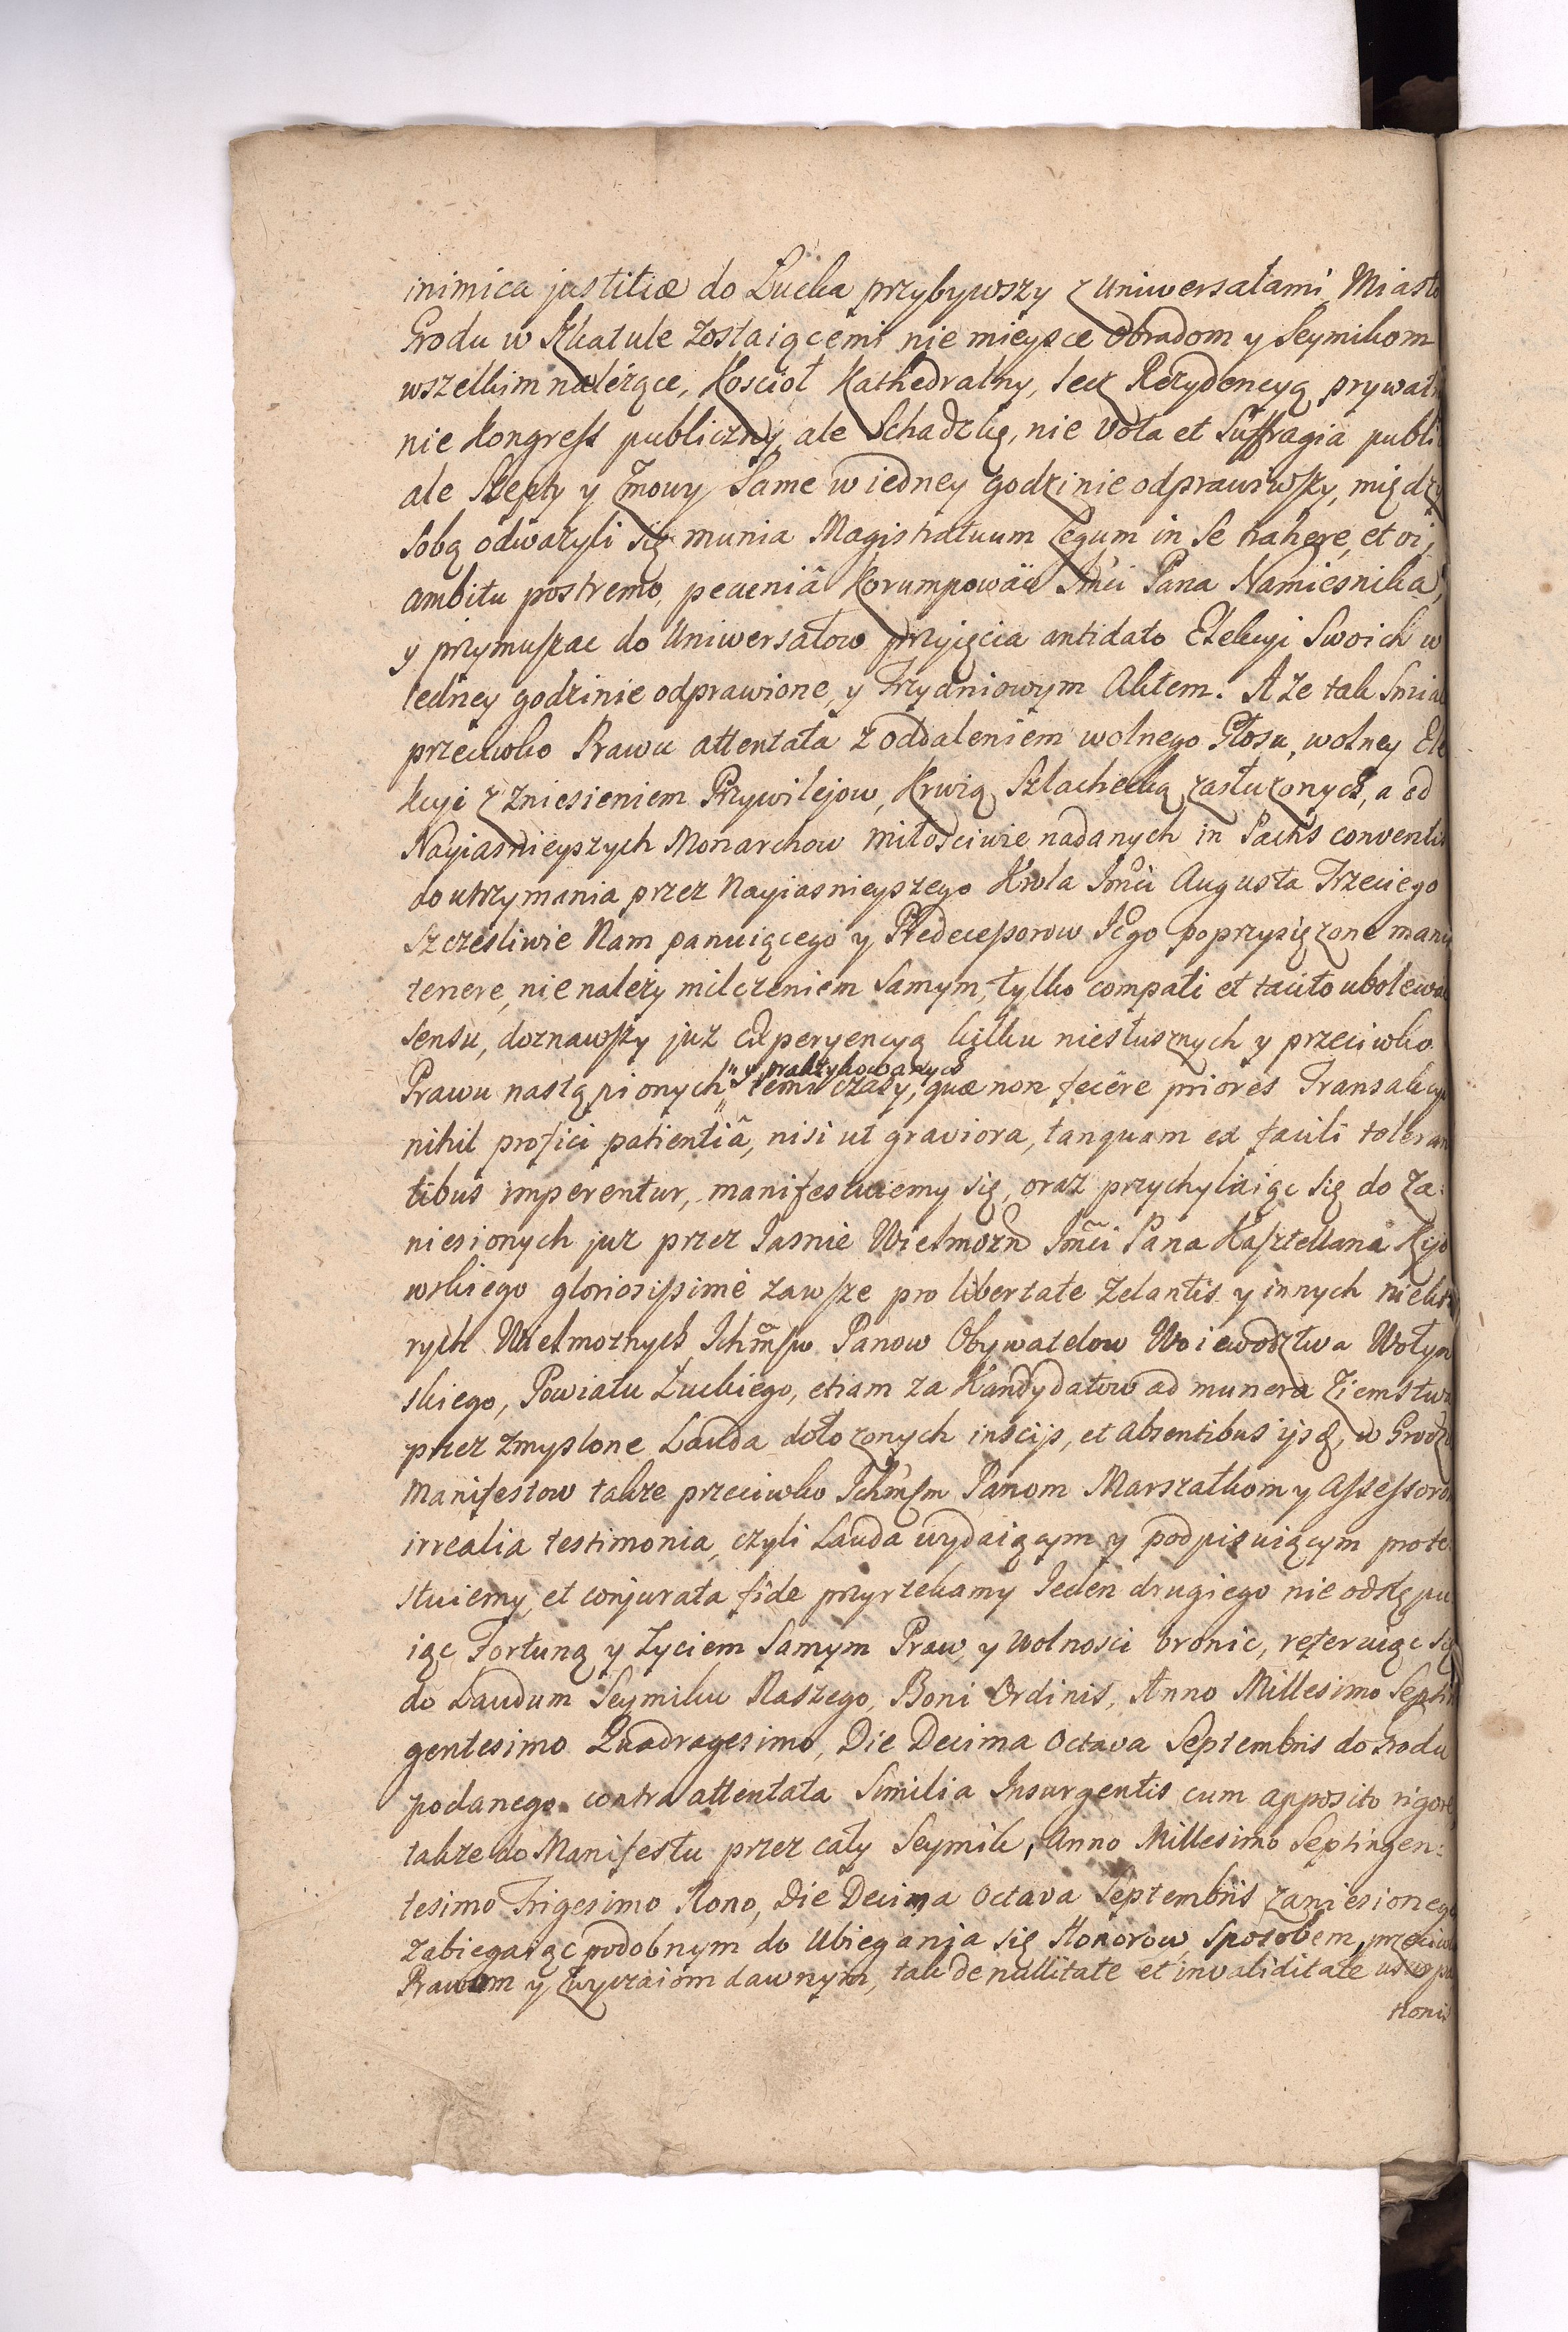 inimica justitiæ do Łucka przybywszy z Uniwersałami, Miasto
Grodu w Szkatule zostaiącemi nie mieysce Obradom y Seymikom
wszelkim należące, Kościoł Kathedralny, lecz Rezydencyą prywat
nie Kongress publiczny, ale Schadzkę, nie Vota et Suffragia publi
ale Szepty y zmowy Same w iedney godzinie odprawiwszy, między
sobą odważyli się munia Magistratuum Legum in se trahere, et vi,
ambitu postremo, pecuniâ Korumpować Jmći Pana Namiesnika,
y przymuszac do Uniwersałow przyięcia antidato Elekcyi Swoich w
iedney godzinie odprawione, y Trzydniowym Aktem. A że tak Smiał
przeciwko Prawu attentata z oddaleniem wolnego Głosu, wolney Ele
kcyi z zniesieniem Przywilejow, Krwią Szlachecką zasłużonych, a od
Nayiasnieyszych Monarchow miłościwie nadanych in Pactis conventis
do utrzymania przez Nayiasnieyszego Krola Jmći Augusta Trzeciego
Szczesliwie Nam panuiącego y Predecessorow Jego poprzysiężone manu
tenere, nie należy milczeniem samym, tylko compati et tacito ubolewać
sensu, doznawszy juz experyencyą kilku niesłusznych y przeciwko
Prawu nastąpionych „y praktykowanych„ temi czasy, quæ non fecêre priores Transakcyi
nihil profici patientiâ, nisi ut graviora, tanquam ex facili toleran
tibus imperentur, manifestuiemy się, oraz przychylaiąc się do za:
niesionych juz przez Jasnie Wielmożn Jmći Pana Kasztellana Kijo
wskiego gloriosissimé zawsze pro libertate zelantis y innych niekto
rych Wielmożnych Ichmśw Panow Obywatelow Woiewodztwa Wołyn
skiego, Powiatu Łuckiego, etiam za Kandydatow ad munera Ziemstwa
przez zmyslone Lauda dołożonych insciis, et absentibus iisq, w Grodzie
Manifestow takze przeciwko Ichmśm Panom Marszałkom y Assessorom
irrealia testimonia, czyli Lauda wydaiącym y podpisuiącym prote
stuiemy, et conjurata fide przyrzekamy Jeden drugiego nie odstępu
iąc Fortuną y życiem samym Praw y Wolnosci bronic, referuiąc się
do Laudum Seymiku Naszego, Boni Ordinis, Anno Millesimo Septin
gentesimo Quadragesimo, Die Decima Octava Septembris do Grodu
podanego contra attentata similia Insurgentis cum apposito rigore
takze do Manifestu przez cały Seymik, Anno Millesimo Septingen:
tesimo Trigesimo Nono, Die Decima Octava Septembris zaniesionego
zabiegaiąc podobnym do Ubiegania się Honorow, Sposobem, przeciwko
Prawom y zwyczaiom dawnym, tak de nullitate et invaliditate usurpa
tionis